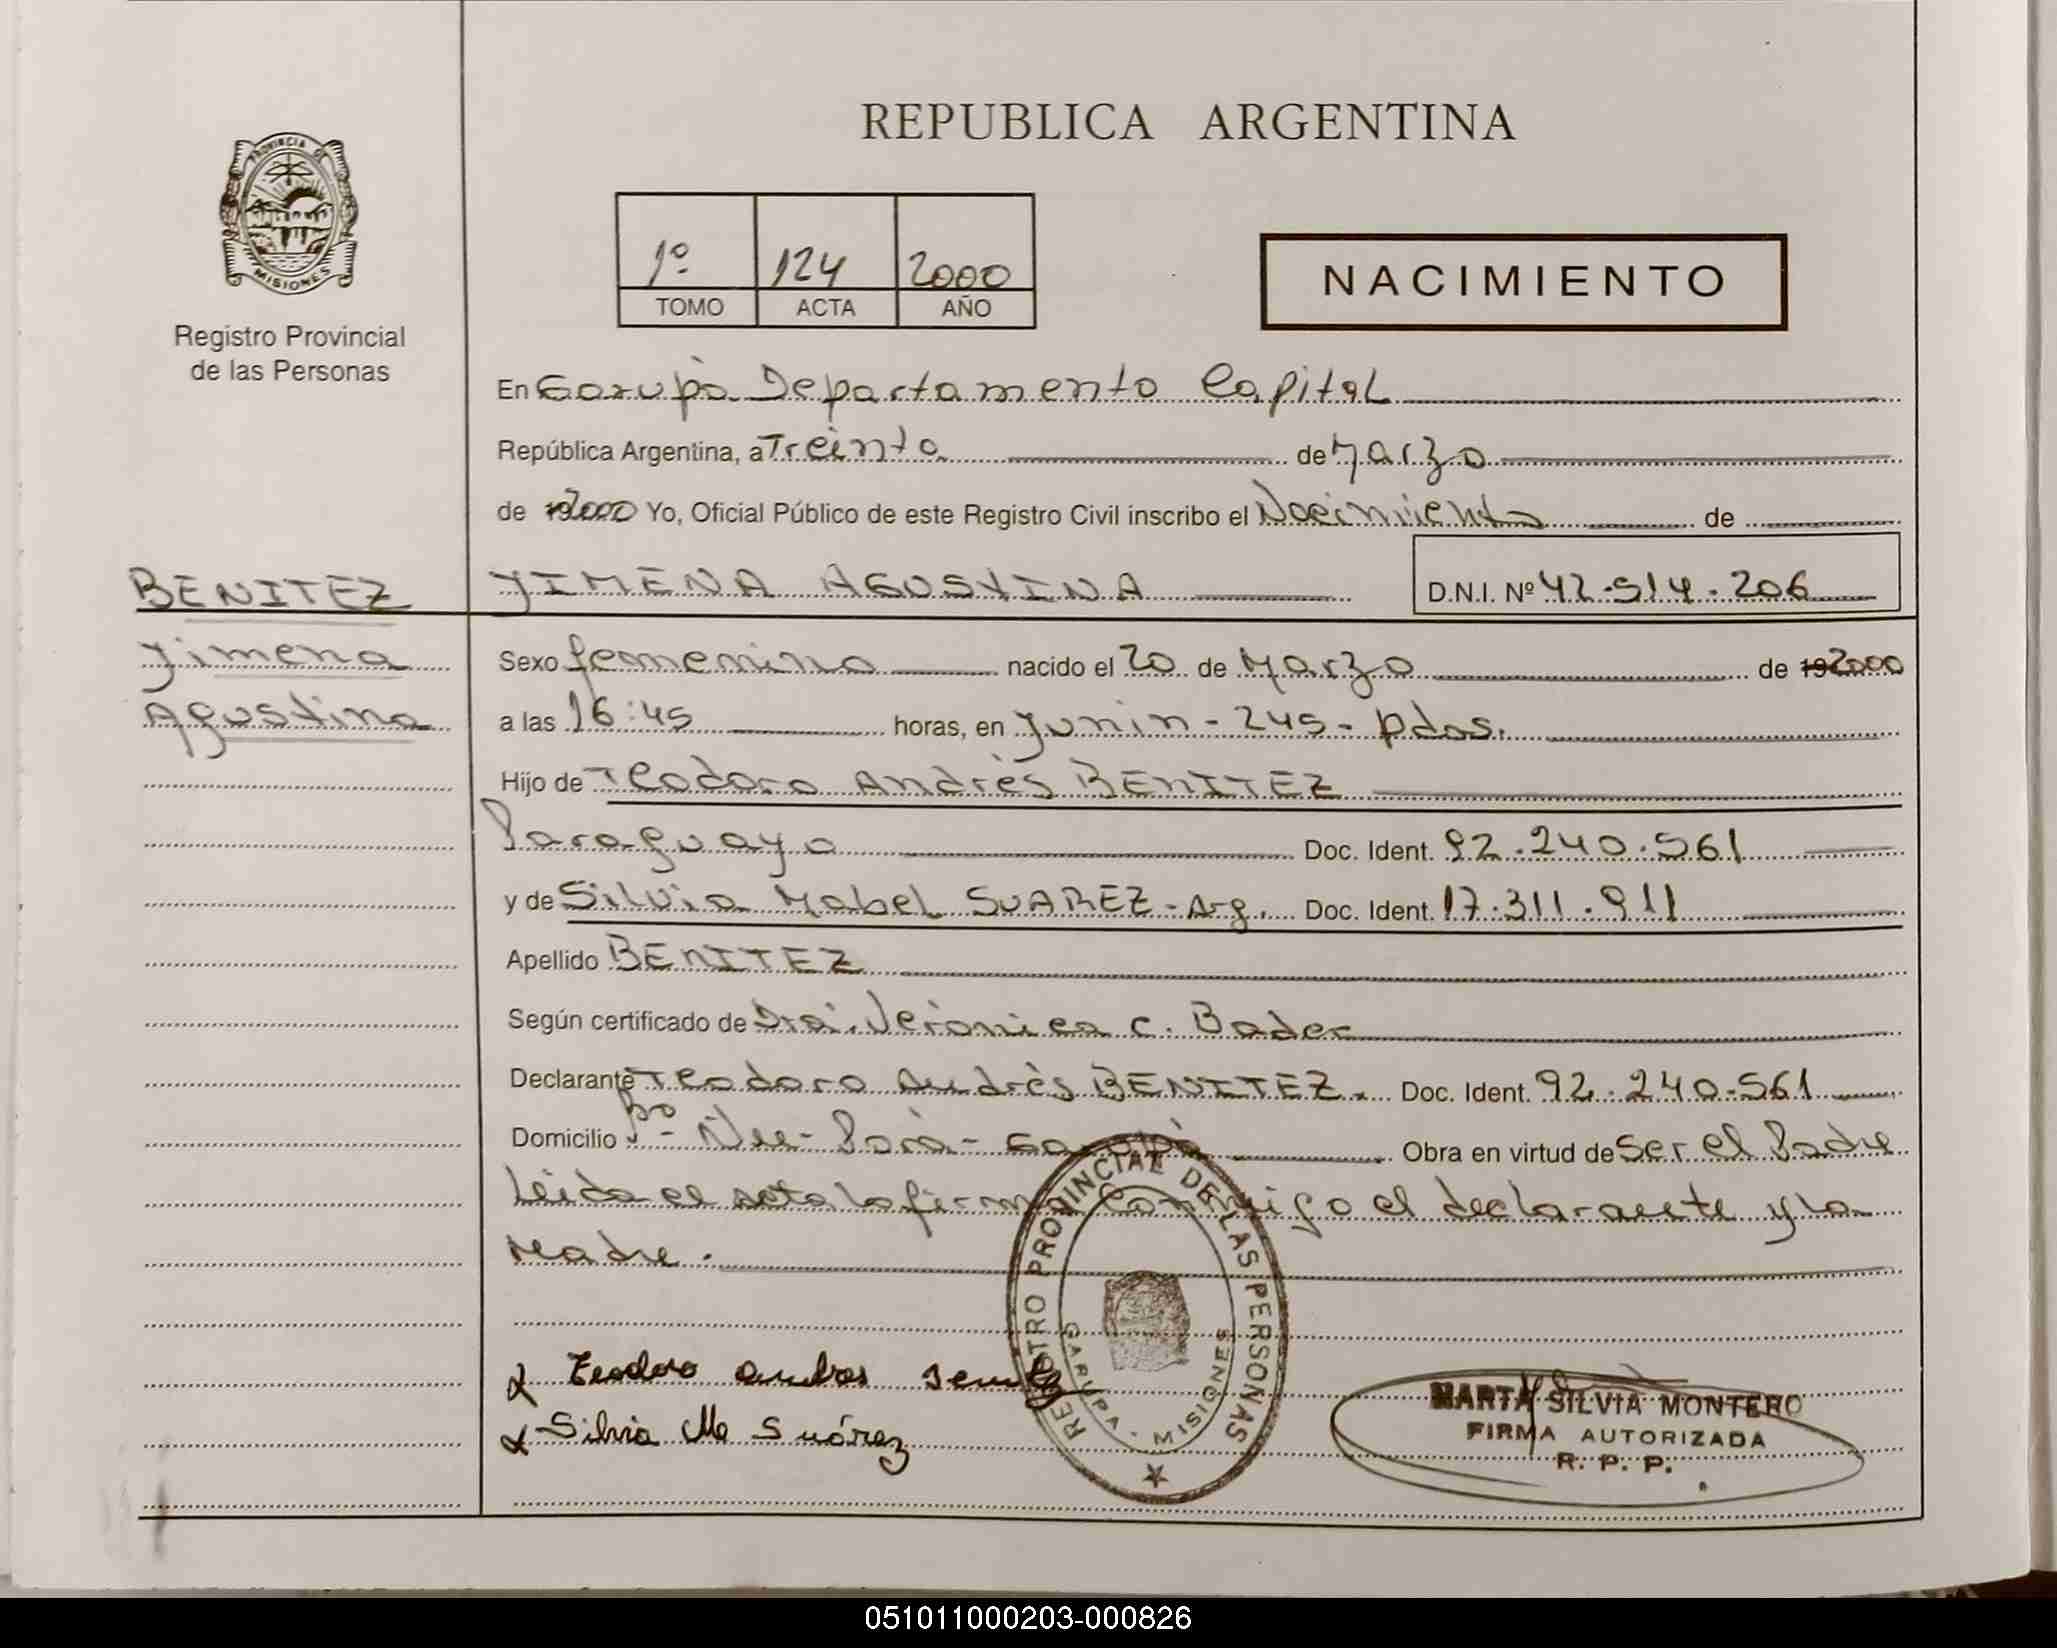 REPUBLICA ARGENTINA
PROVINCIA DE
MISIONES
Registro Provincial
de las Personas
1º 124 2000
TOMO ACTA AÑO
NACIMIENTO
En Garupà Departamento Capital
República Argentina, a Treinta de Marzo
de 192000 Yo, Oficial Público de este Registro Civil inscribo el Nacimiento de
BENITEZ
YIMENA AGUSTINA D.N.I. Nº 42.514.206
Yimena
Agustina
Sexo femenino nacido el 20 de Marzo de 192000
a las 16:45 horas, en Junin - 245 - Pdas.
Hijo de Teodoro Andrès BENITEZ
Paraguayo Doc. Ident. 92.240.561
y de Silvia Mabel SUAREZ - Arg. Doc. Ident. 17.311.911
Apellido BENITEZ
Según certificado de Dra. Verònica C. Bader
Declarante Teodoro Andrès BENITEZ. Doc. Ident. 92.240.561
Domicilio Bº Ñu - Porà - Garupà Obra en virtud de ser el Padre
Leida el acta la firma conmigo el declarante y la
Madre.
REGISTRO PROVINCIAL DE LAS PERSONAS
GARUPA - MISIONES
Teodoro
Silvia Ma Suárez
MARTA SILVIA MONTERO
FIRMA AUTORIZADA
R. P. P.
051011000203-000826